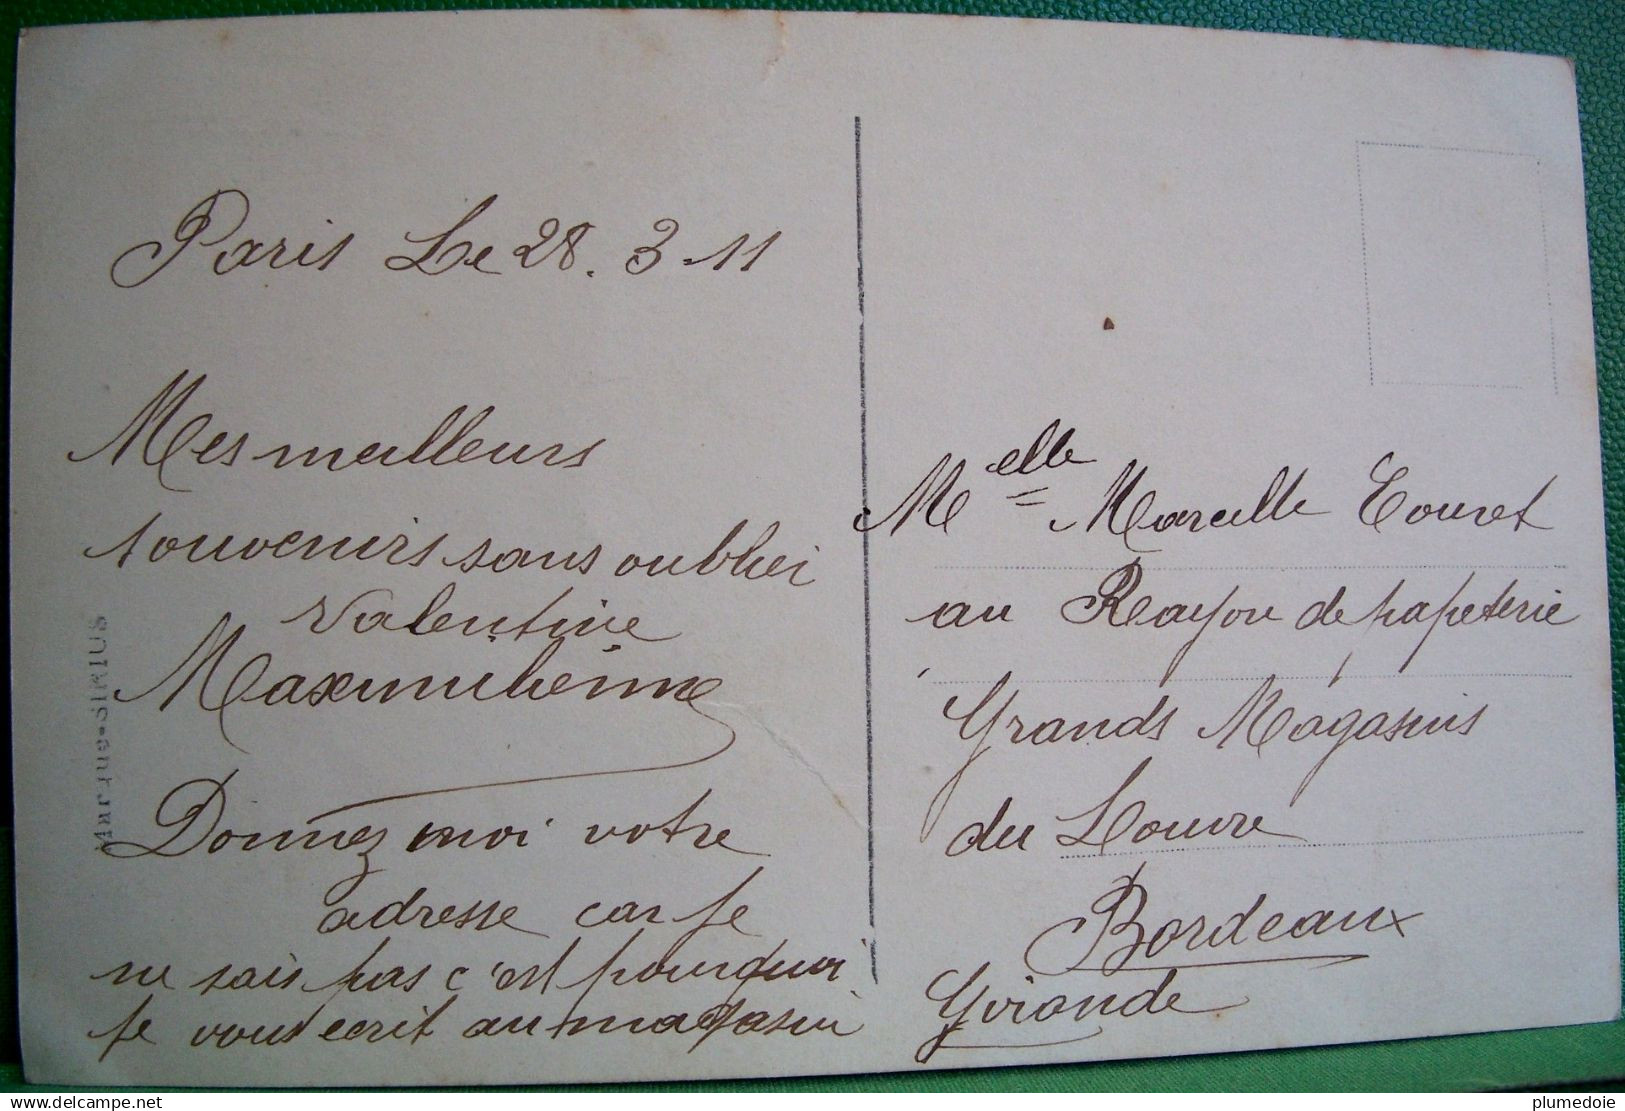 Paris Le 28. 3-11
Mes meilleurs
souvenirs sans oublier
Valentine
Maximilienne
Donnez moi votre
adresse car je
ne sais pas c'est pourquoi
je vous ecrit au magasin
Marque-SIRIUS
Melle Marcelle Touret
au Rayon de papeterie
Grands Magasins
du Louvre
Bordeaux
Gironde
delcampe.net
plumedoie